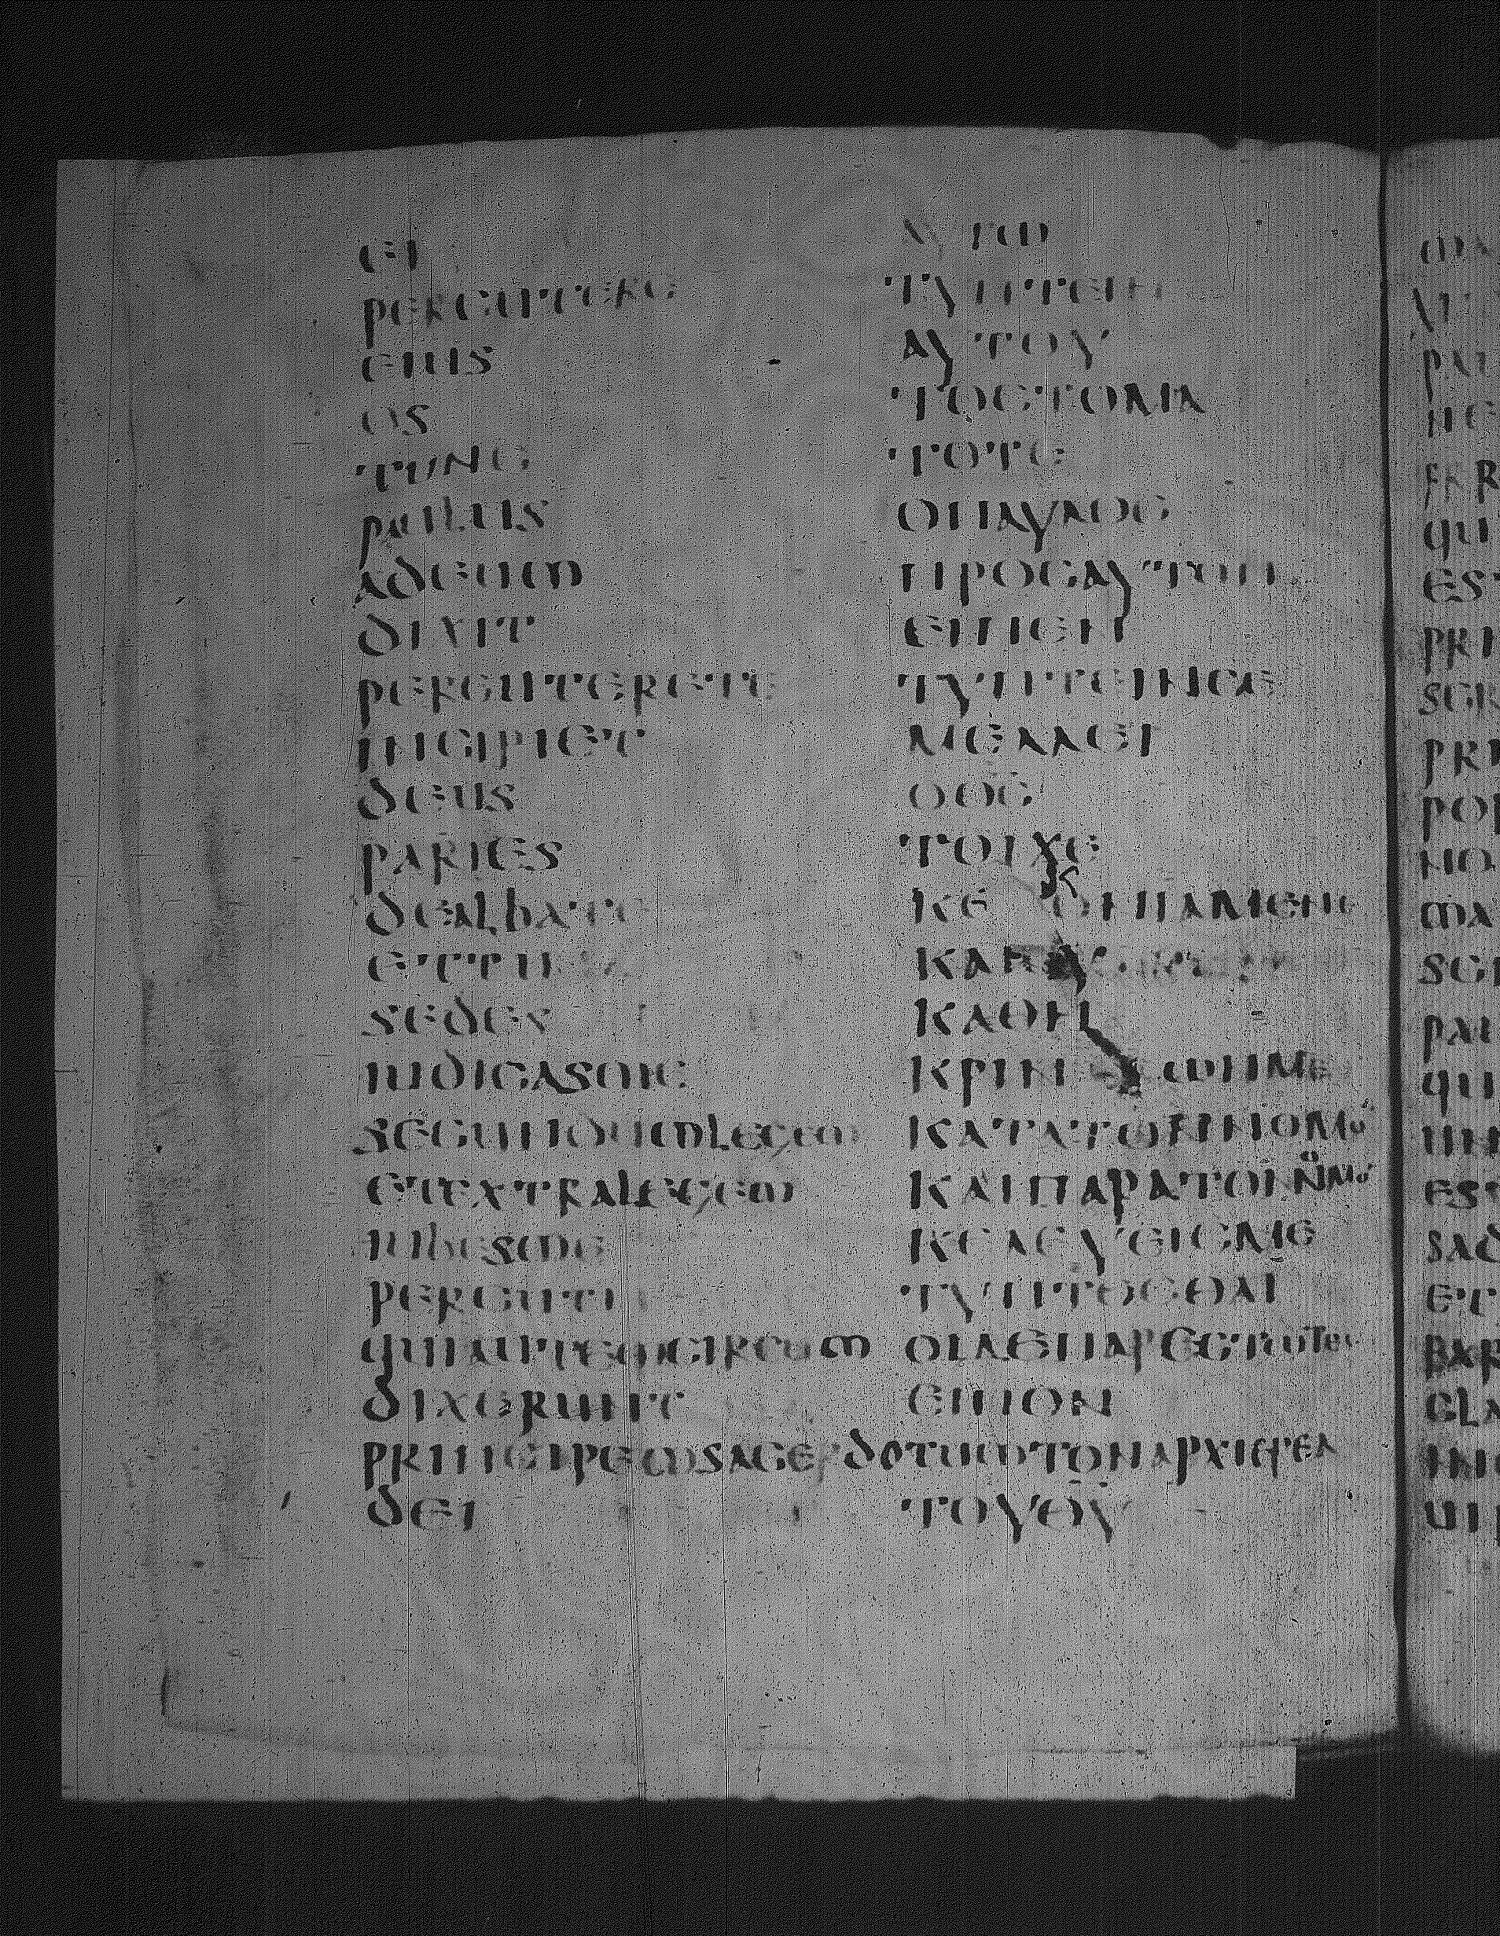 EI
PERCUTERE
EIUS
OS
TUNC
PAULUS
ADEUM
DIXIT
PERCUTERETE
INCIPIET
DEUS
PARIES
DEALBATE
ETTU
SEDES
IUDICASME
SECUNDUMLEGEM
ETEXTRALEGEM
IUBESME
PERCUTI
QUIAUTEMCIRCUM
DIXERUNT
PRINCIPEMSACERDOTUM
DEI
ΤΥΠΤΕΙΝ
ΑΥΤΟΥ
ΤΟϹΤΟΜΑ
ΤΟΤΕ
ΟΠΑΥΛΟϹ
ΠΡΟϹΑΥΤΟΝ
ΕΙΠΕΝ
ΤΥΠΤΕΙΝϹΕ
ΜΕΛΛΕΙ
ΟΘ̅Ϲ̅
ΤΟΙΧΕ
ΚΕΚΟΝΙΑΜΕΝΕ
ΚΑΘΗ
ΚΡΙΝΩΝΜΕ
ΚΑΤΑΤΟΝΝΟΜΟ̅
ΚΑΙΠΑΡΑΤΟΝΝΟΜΟ̅
ΚΕΛΕΥΕΙϹΜΕ
ΤΥΠΤΕϹΘΑΙ
ΟΙΔΕΠΑΡΕϹΤΩΤΕϹ
ΕΙΠΟΝ
ΤΟΝΑΡΧΙΕΡΕΑ
ΤΟΥΘ̅Υ̅